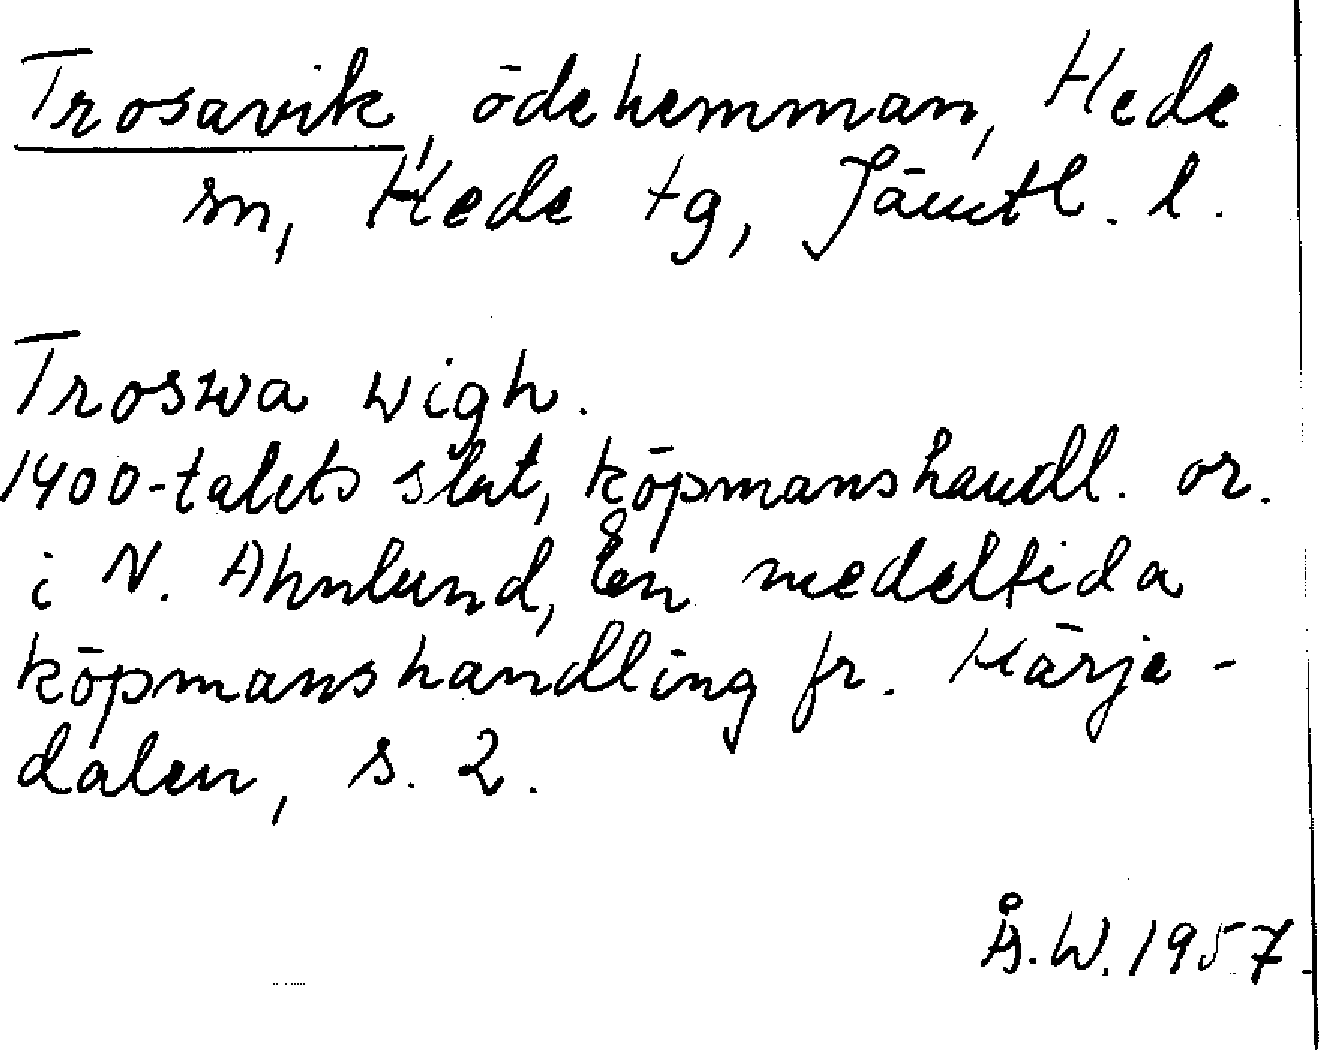 Trosavik, ödehemman, Hede
sn, Hede tg, Jämtl. l.
Troswa wigh.
1400-talets slut, köpmanshandl. or.
i N. Ahnlund, En medeltida
köpmanshandling fr. Härje-
dalen, s. 2.
Å.W. 1957.